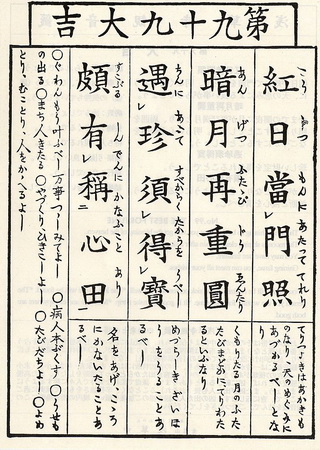 第九十九大吉
こう じつ もんに あたつて てれり
紅日當レ門照
てりつよきはあかきも
のなり、天のめぐみに
あづかるべしとな
り
あん げつ ふたゝび
暗月再重圓
くもりたる月のふた
たびまどかにてりわた
るといふなり
ちんに あふて すべからく たからを うべし
遇レ珍須レ得レ寶
めづらしきざいほ
うをうることあ
るべし
すこぶる しんでんに かなふこと あり
頗有レ稱二心田一
名をあげ、こゝろ
にかないたることあ
るべし
〇ぐわんもう叶ふべし 万事つゝしみてよし 〇病人本ぷくす 〇うせも
の出る 〇まち人きたる 〇やづくり、ひきこしよし 〇たびだちよし 〇よめ
とり、むことり、人をかゝへるよし